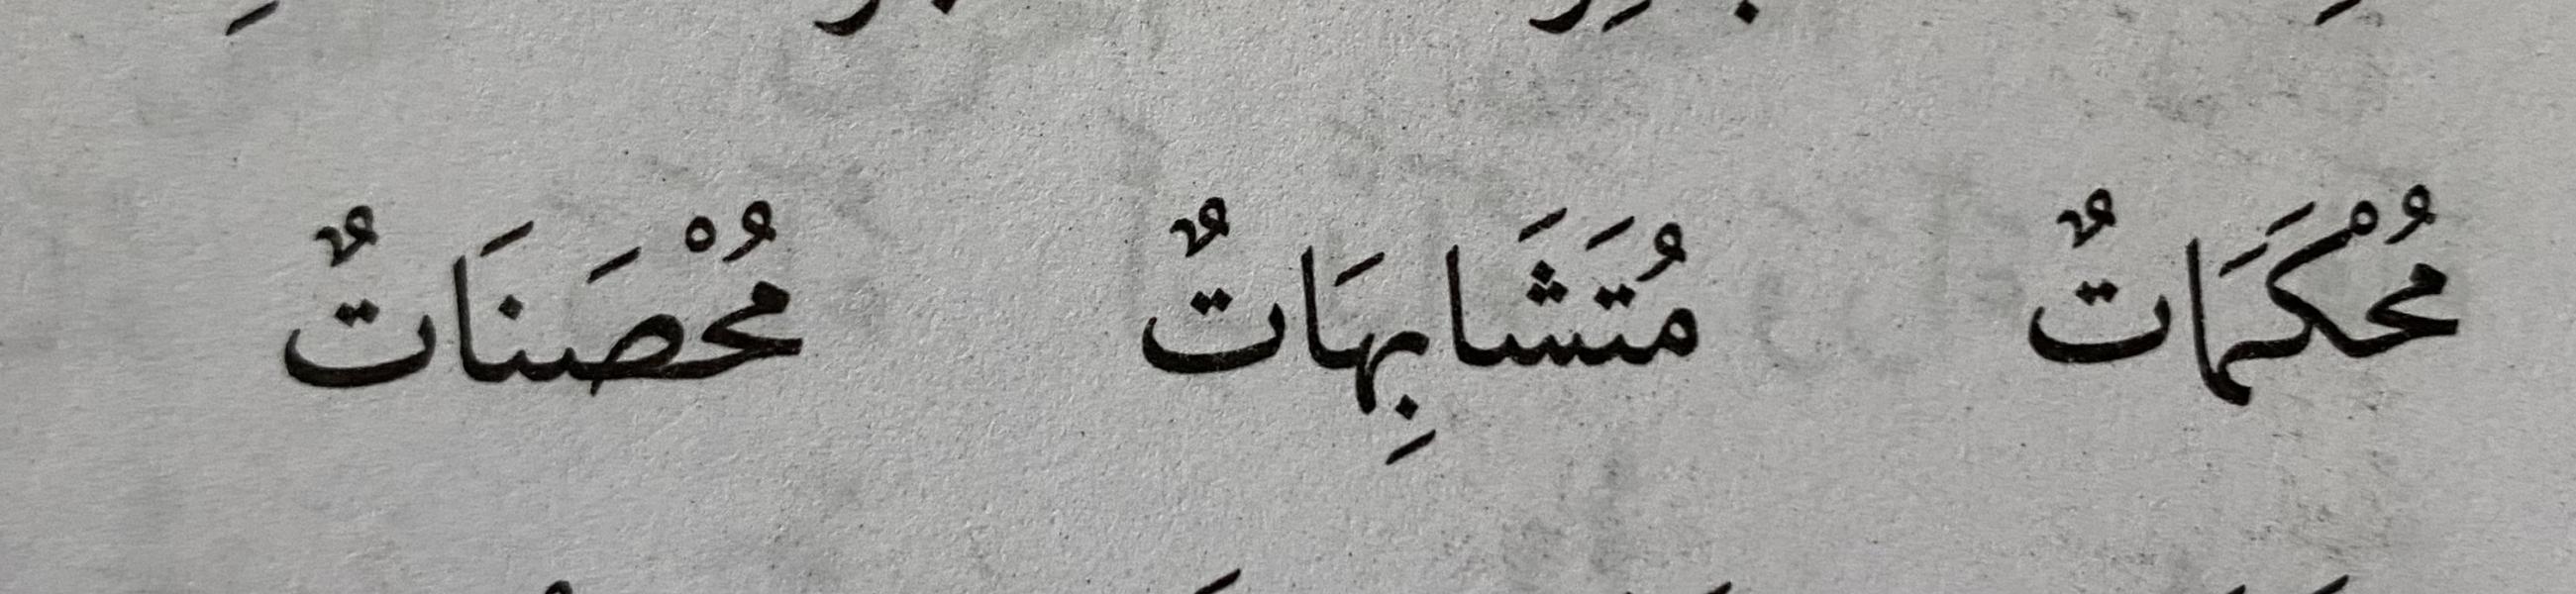 مُحْكَمَاتٌ مُتَشَابِهَاتٌ مُحْصَنَاتٌ